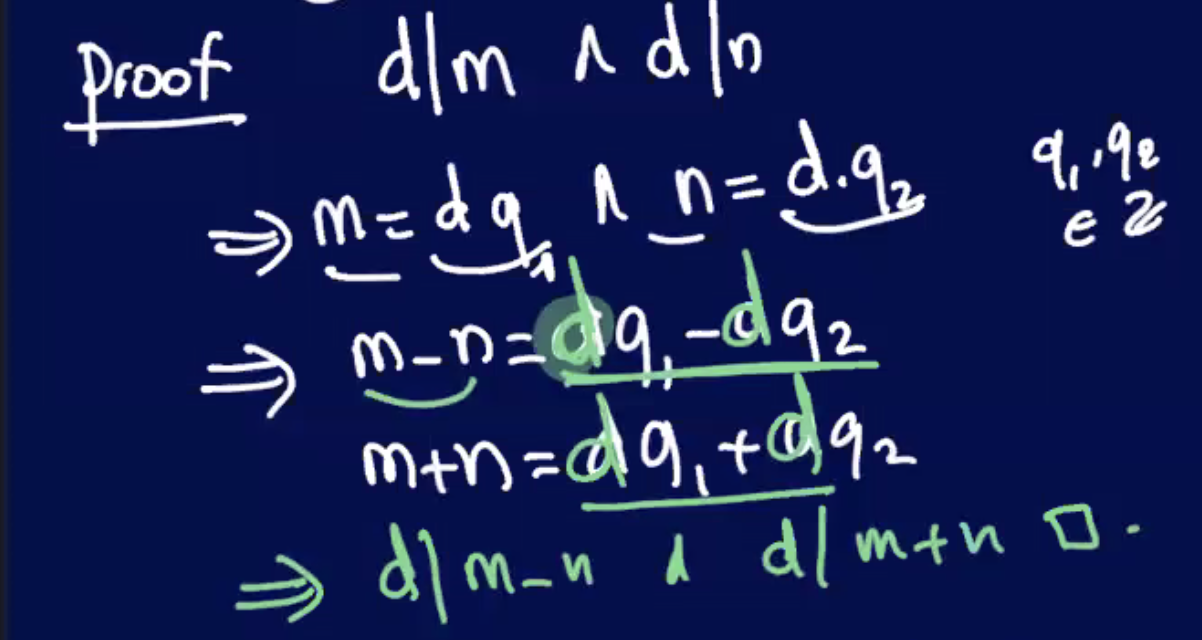 Proof d|m ∧ d|n
⇒ m = dq₁ ∧ n = d.q₂ q₁,q₂
∈ ℤ
⇒ m-n = dq₁-dq₂
m+n = dq₁+dq₂
⇒ d|m-n ∧ d|m+n □.